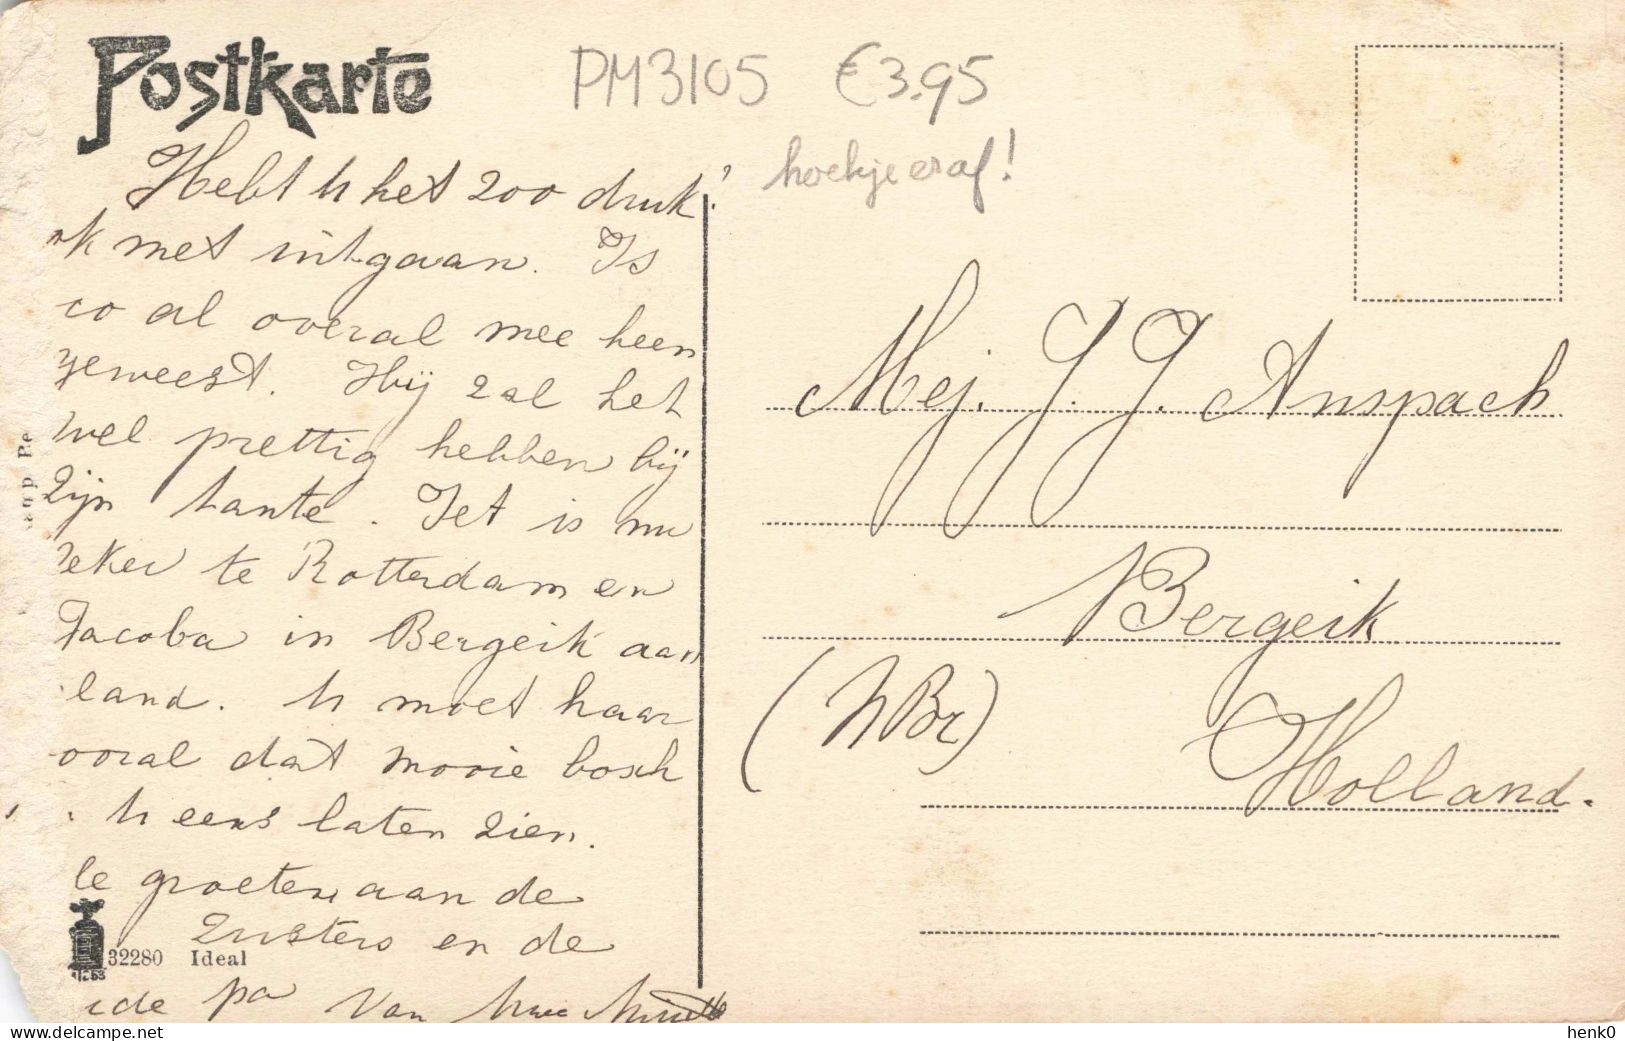 Postkarte
PM3105 €3.95
hoekje eraf!
Hebt U het zoo druk?
met uitgaan. Is
co al overal mee heen
geweest. Hij zal het
wel prettig hebben bij
zijn tante. Jet is nu
zeker te Rotterdam en
Jacoba in Bergeik aan
land. U moet haar
ooral dat mooie bosch
U eens laten zien.
le groeten aan de
Zusters en de
pa van Uwe
32280 Ideal
Mej. J. J. Anspach
Bergeik
(NBr)
Holland.
henk0